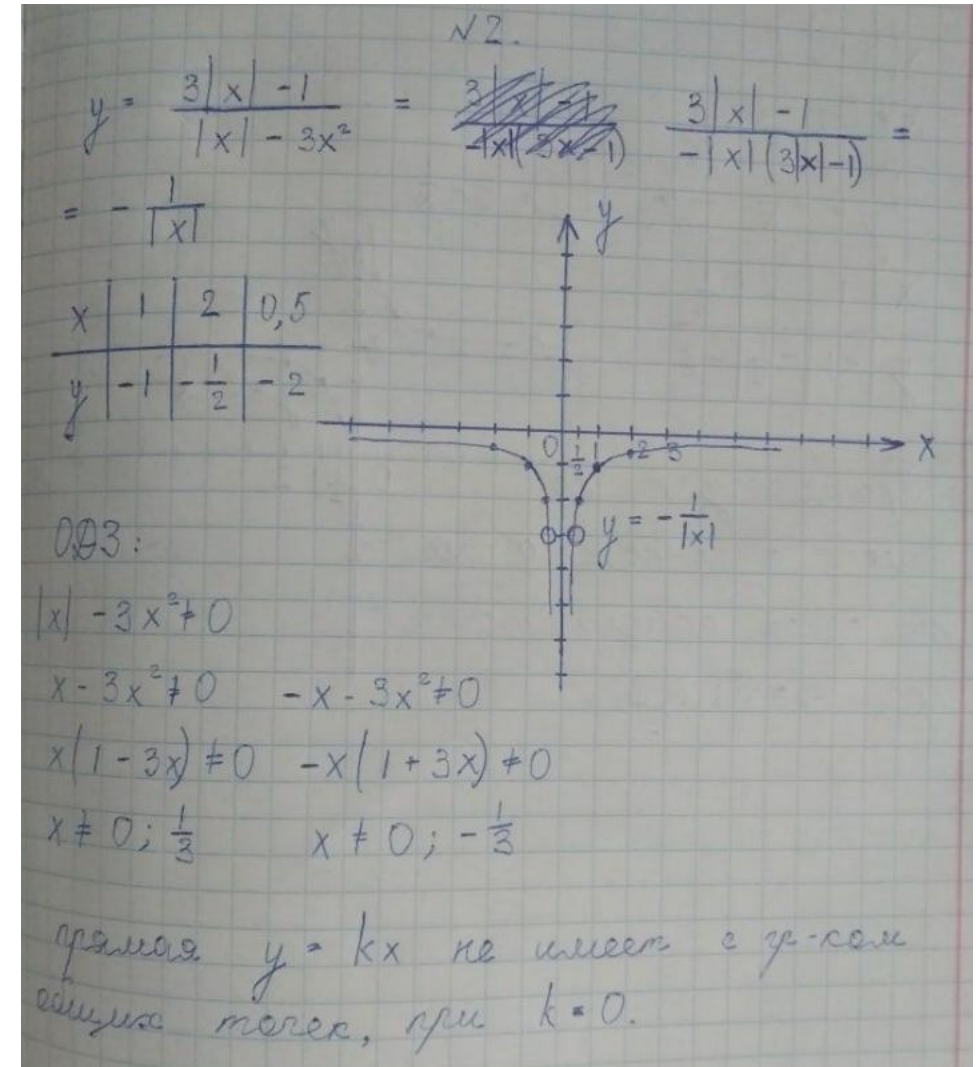 №2.
y = \frac{3|x| - 1}{|x| - 3x²} = \frac{3|x| - 1}{-|x|(3|x|-1)} =
= - \frac{1}{|x|}
x | 1 | 2 | 0,5
y | -1 | -\frac{1}{2} | -2
y
0 \frac{1}{2} 1 2 3 x
y = - \frac{1}{|x|}
ОДЗ:
|x| - 3x² ≠ 0
x - 3x² ≠ 0 -x - 3x² ≠ 0
x(1 - 3x) ≠ 0 -x(1 + 3x) ≠ 0
x ≠ 0; \frac{1}{3} x ≠ 0; -\frac{1}{3}
прямая y = kx не имеет с гр-ком
общих точек, при k = 0.